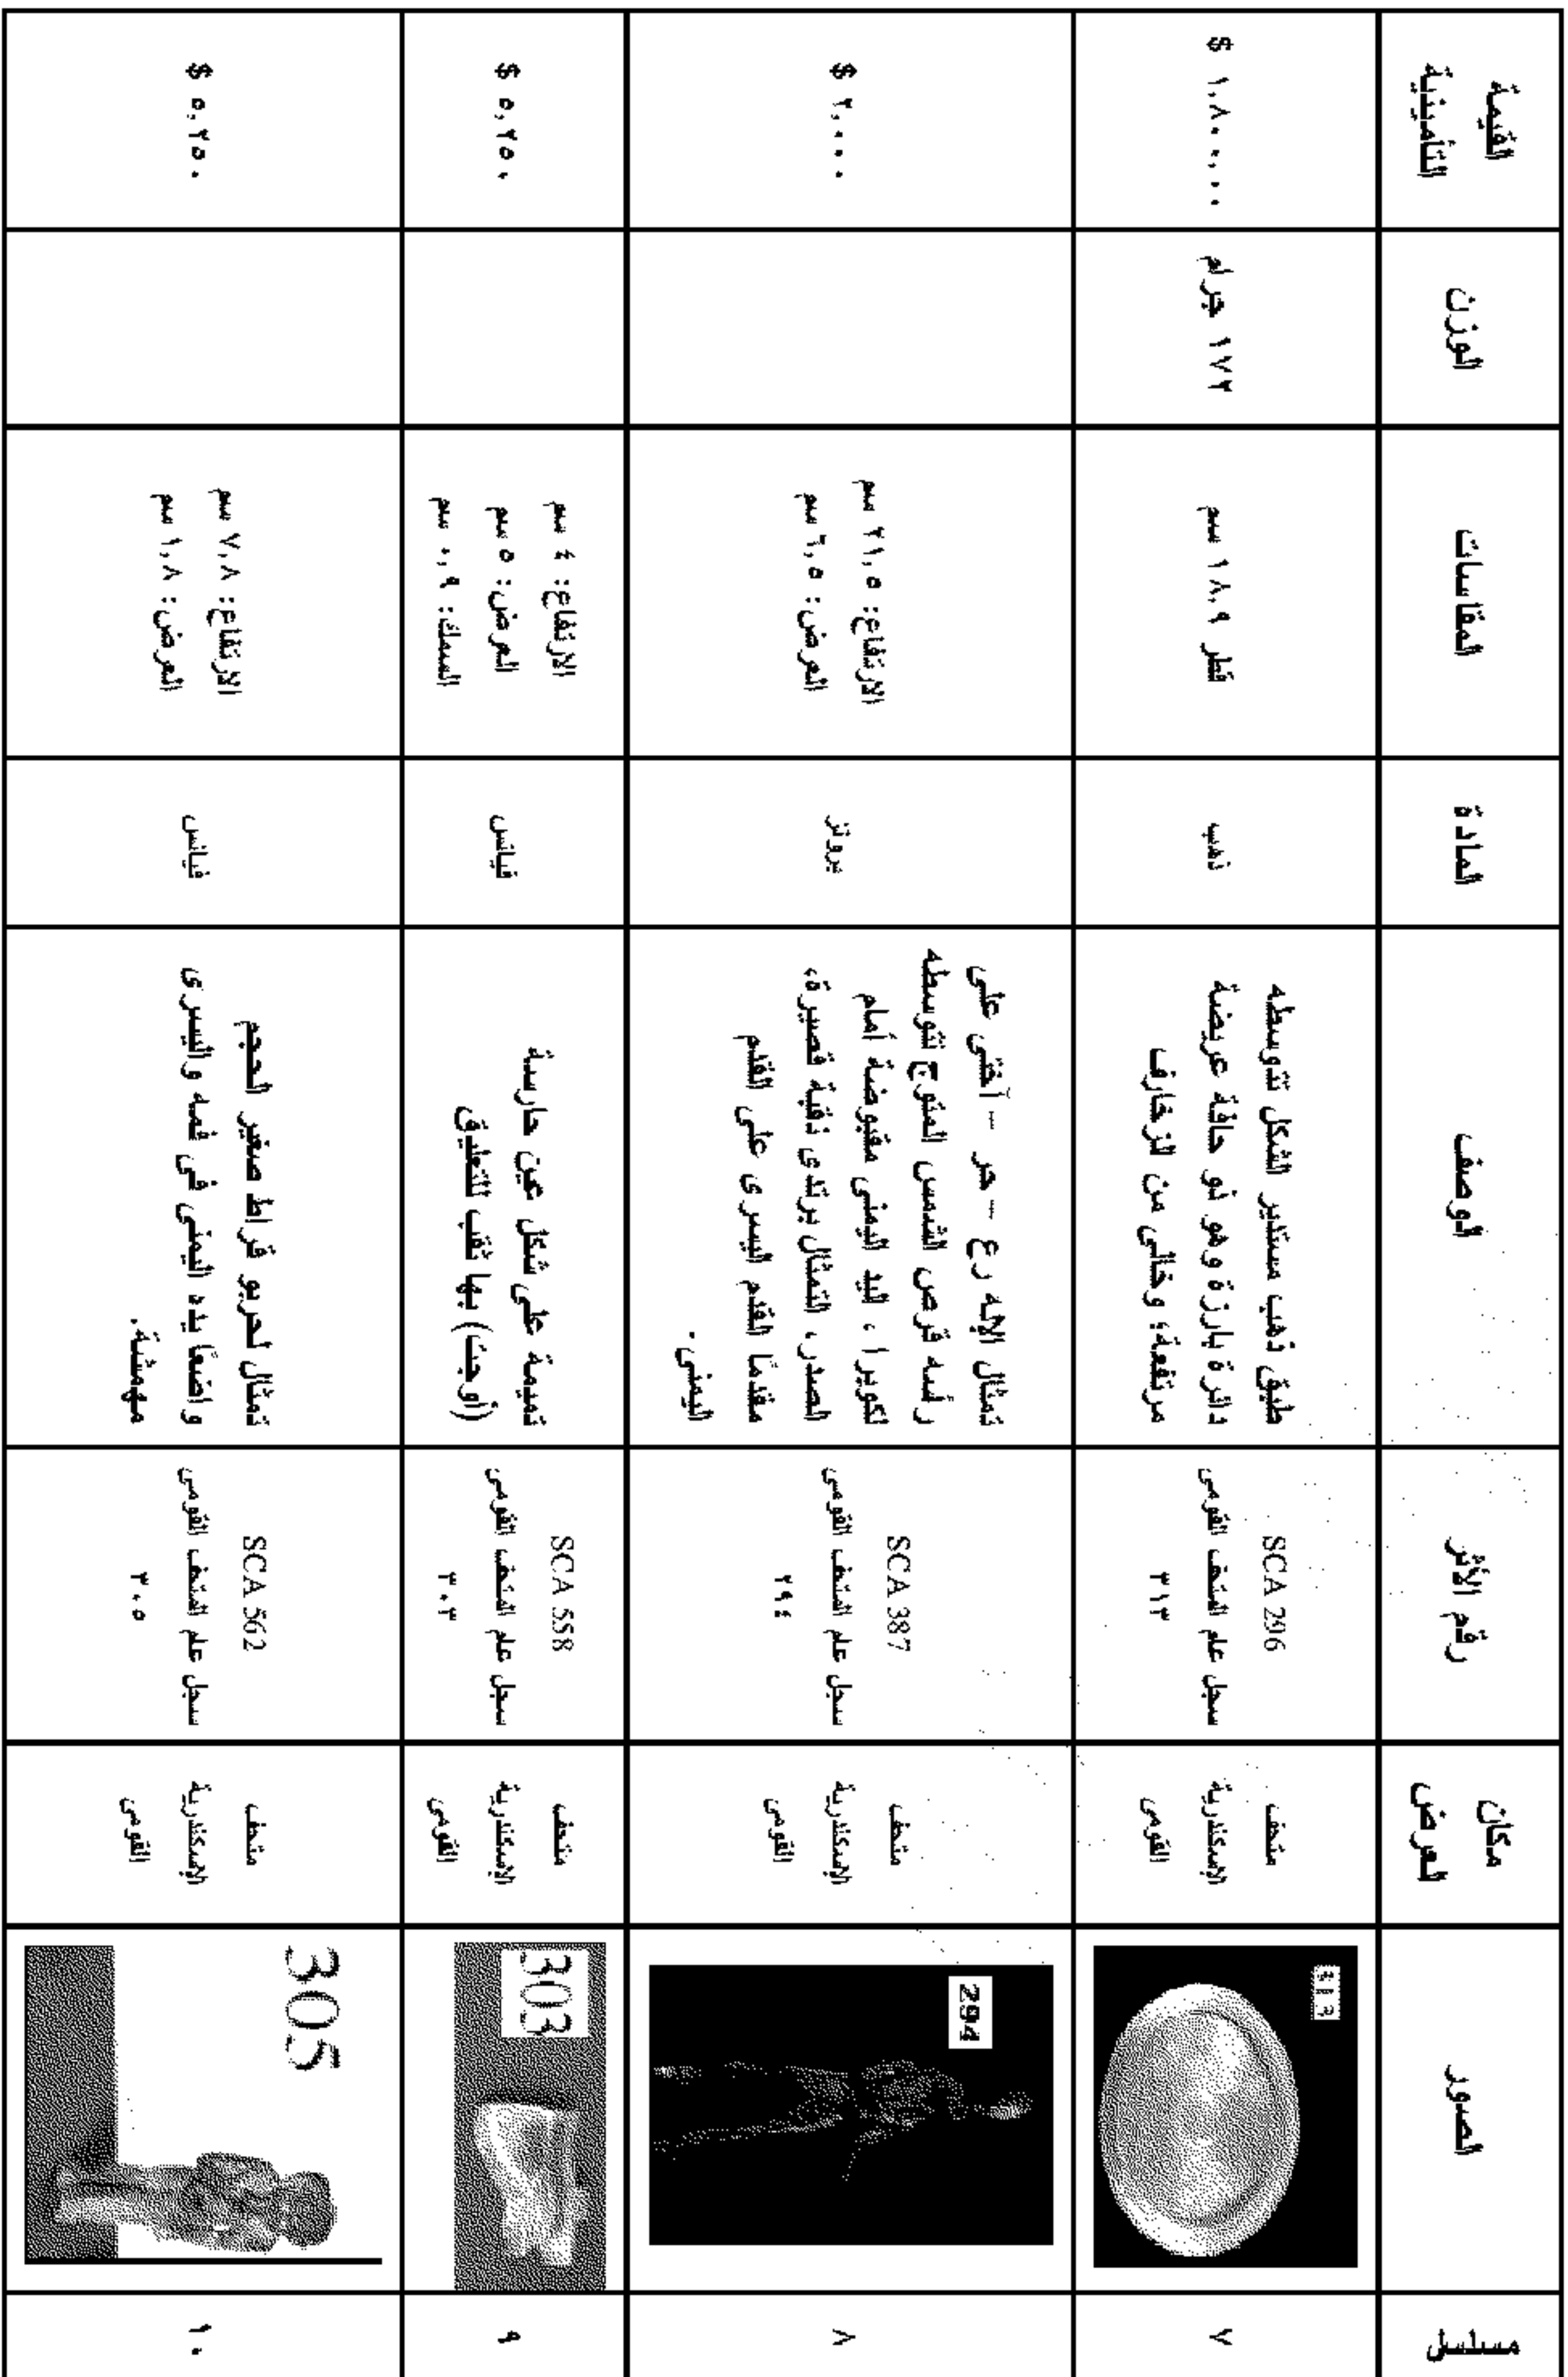 مسلسل
الصور
مكان
العرض
رقم الأثر
الوصف
المادة
المقاسات
الوزن
القيمة
التأمينية
٧
٣١٣
متحف
الإسكندرية
القومى
SCA 296
سجل عام المتحف القومى
٣١٣
طبق ذهب مستدير الشكل تتوسطه
دائرة بارزة وهو ذو حافة عريضة
مرتفعة، وخالى من الزخارف
ذهب
قطر ١٨,٩ سم
١٧٢ جرام
١,٨٠٠,٠٠٠ $
٨
294
متحف
الإسكندرية
القومى
SCA 387
سجل عام المتحف القومى
٢٩٤
تمثال الإله رع – حر – آختى على
رأسه قرص الشمس المتوج تتوسطه
لكوبرا ، اليد اليمنى مقبوضة أمام
الصدر، التمثال يرتدى نقبة قصيرة،
مقدمًا القدم اليسرى على القدم
اليمنى.
برونز
الارتفاع: ٢١,٥ سم
العرض: ٦,٥ سم
٢,٠٠٠ $
٩
303
متحف
الإسكندرية
القومى
SCA 558
سجل عام المتحف القومى
٣٠٣
تميمة على شكل عين حارسة
(أوجت) بها ثقب للتعليق
فيانس
الارتفاع: ٤ سم
العرض: ٥ سم
السمك: ٠,٩ سم
٥,٢٥٠ $
١٠
305
متحف
الإسكندرية
القومى
SCA 562
سجل عام المتحف القومى
٣٠٥
تمثال لحربو قراط صغير الحجم
واضعًا يده اليمنى فى فمه واليسرى
مهمشة.
فيانس
الارتفاع: ٧,٨ سم
العرض: ١,٨ سم
٥,٢٥٠ $